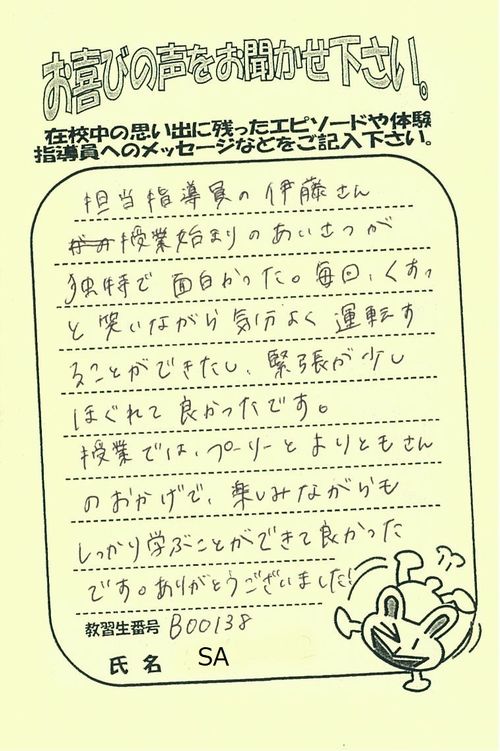 お喜びの声をお聞かせ下さい。
在校中の思い出に残ったエピソードや体験
指導員へのメッセージなどをご記入下さい。
担当指導員の伊藤さん
授業始まりのあいさつが
独特で面白かった。毎回、くすっ
と笑いながら気分よく運転す
ることができたし、緊張が少し
ほぐれて良かったです。
授業では、プーリーとよりともさん
のおかげで、楽しみながらも
しっかり学ぶことができて良かった
です。ありがとうございました!
教習生番号 B00138
氏名 SA